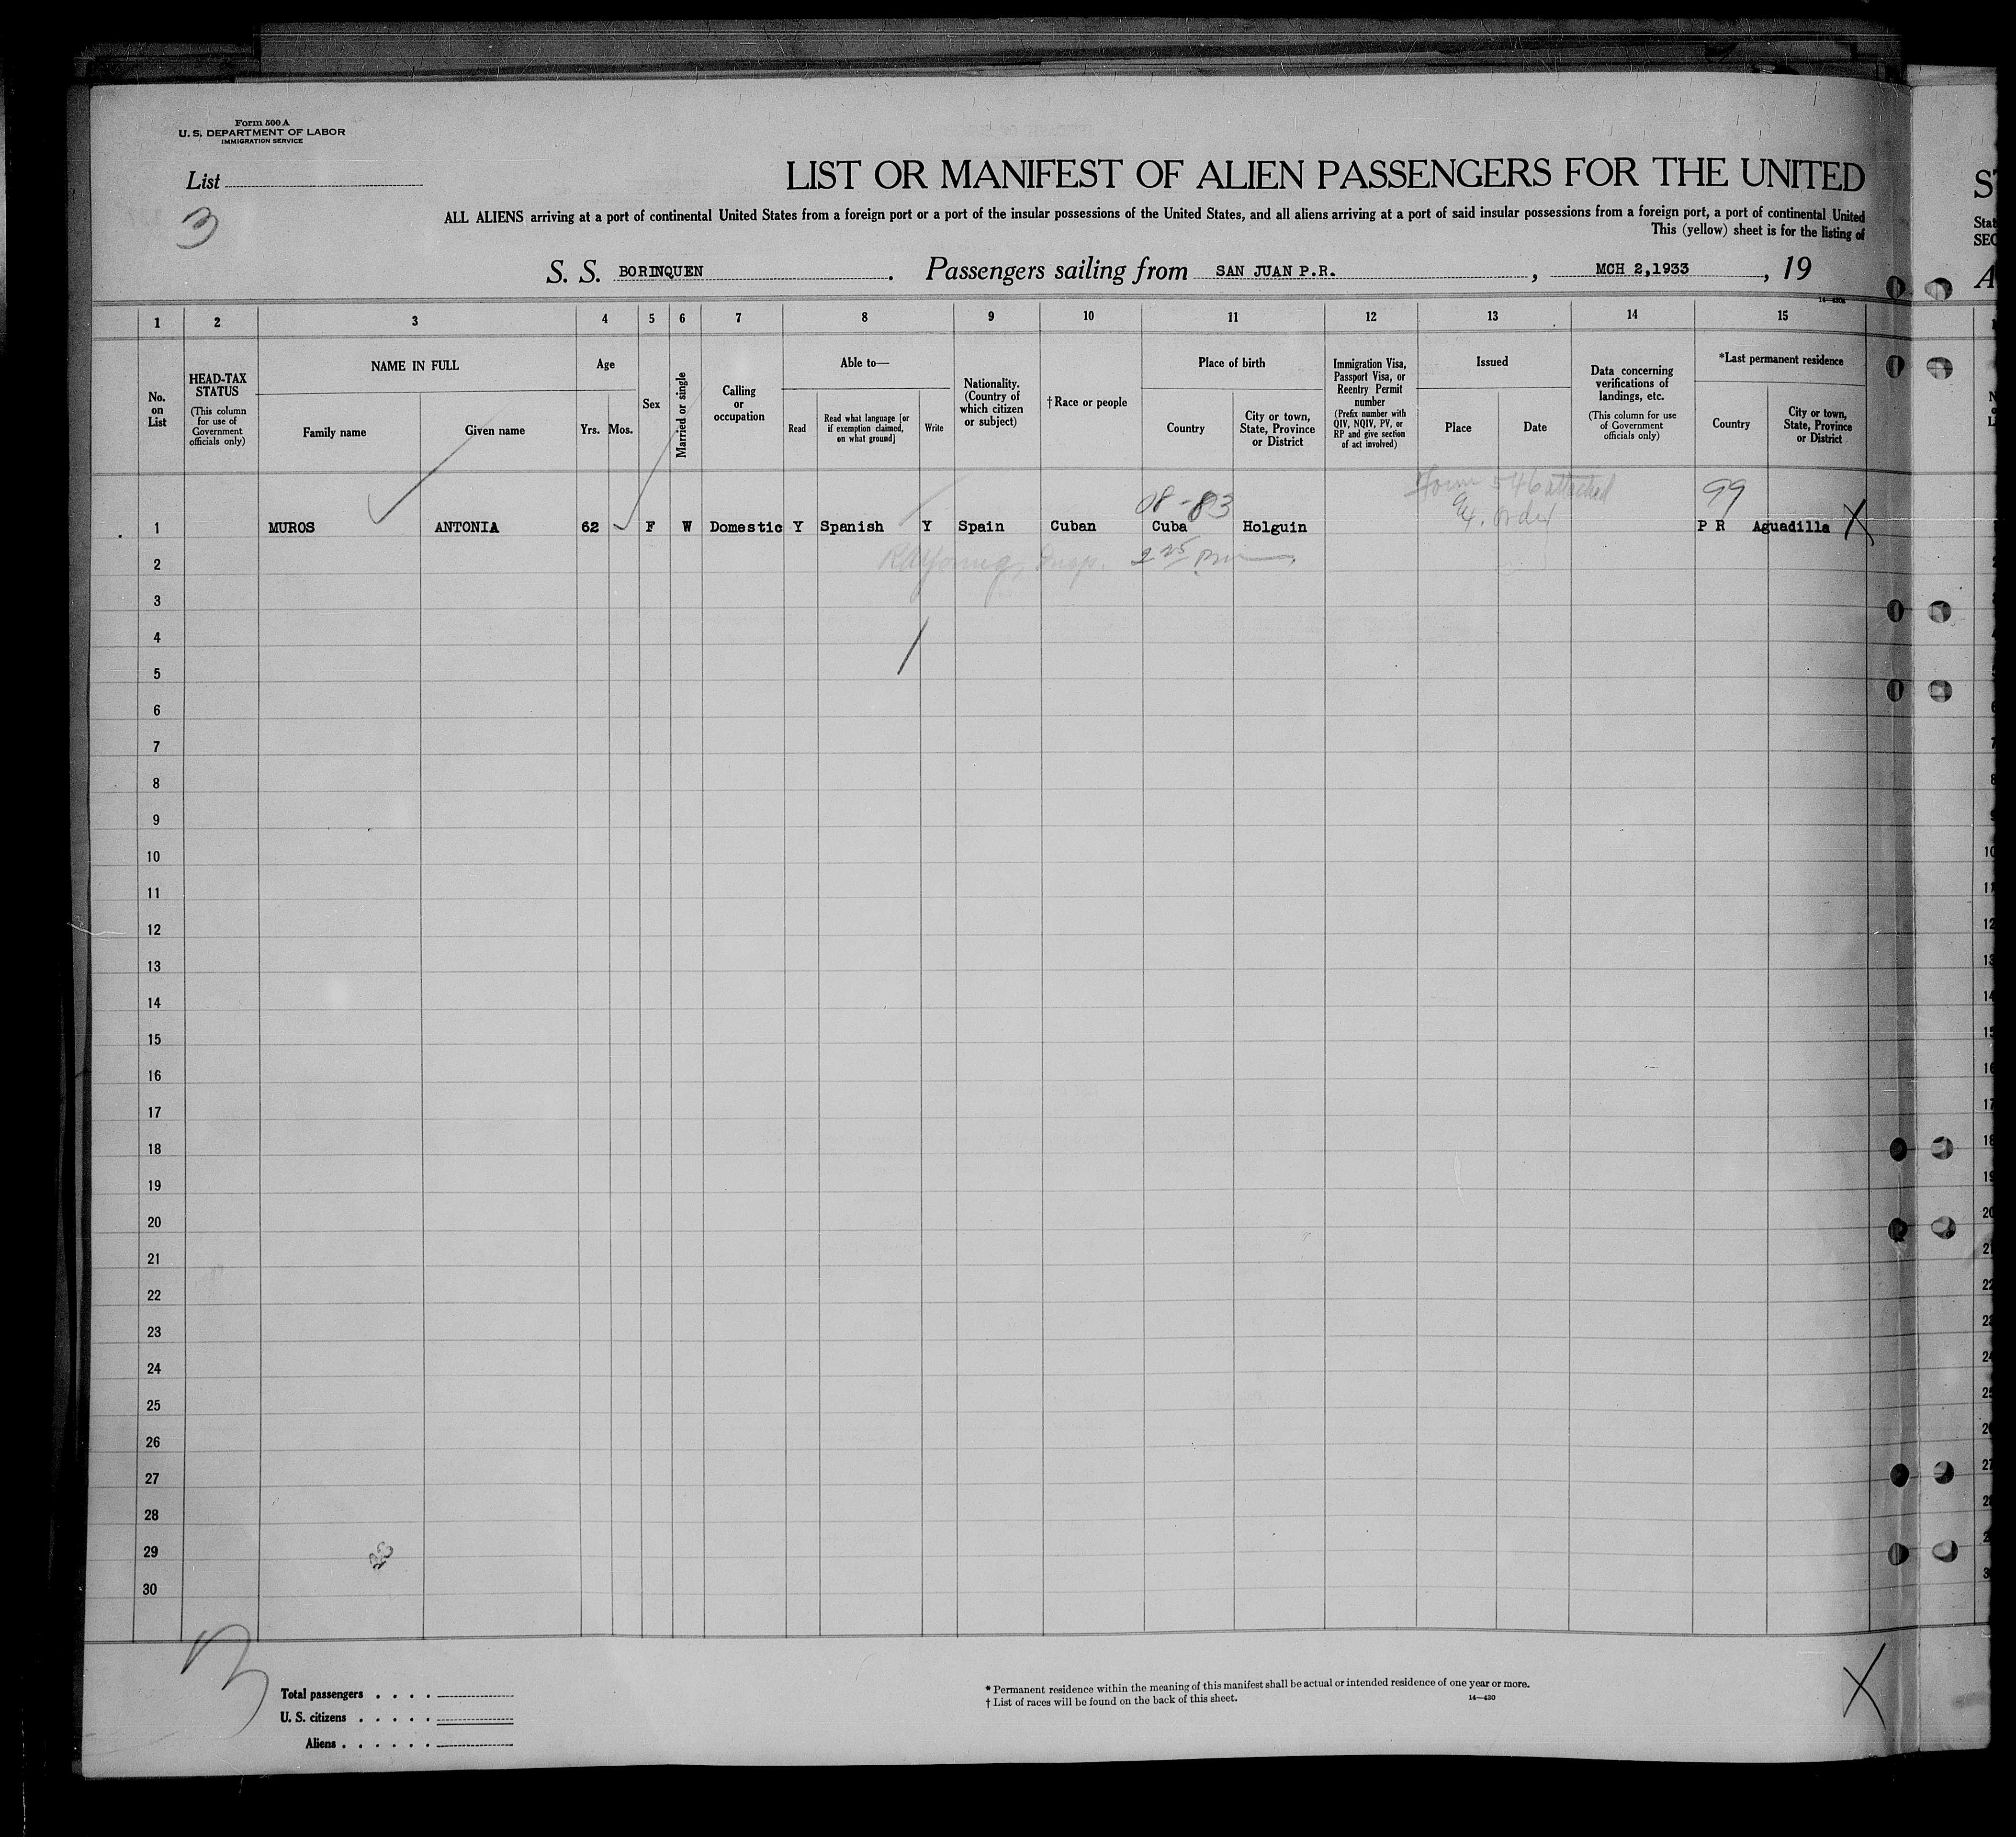 Form 500 A
U. S. DEPARTMENT OF LABOR
IMMIGRATION SERVICE
List
3
LIST OR MANIFEST OF ALIEN PASSENGERS FOR THE UNITED
ALL ALIENS arriving at a port of continental United States from a foreign port or a port of the insular possessions of the United States, and all aliens arriving at a port of said insular possessions from a foreign port, a port of continental United
This (yellow) sheet is for the listing of
S. S. BORINQUEN. Passengers sailing from SAN JUAN P.R., MCH 2,1933, 19
1 2 3 4 5 6 7 8 9 10 11 12 13 14 15
No. on List
HEAD-TAX STATUS
(This column for use of Government officials only)
NAME IN FULL
Family name
Given name
Age
Yrs. Mos.
Sex
Married or single
Calling or occupation
Able to—
Read
Read what language [or if exemption claimed, on what ground]
Write
Nationality. (Country of which citizen or subject)
†Race or people
Place of birth
Country
City or town, State, Province or District
Immigration Visa, Passport Visa, or Reentry Permit number
(Prefix number with QIV, NQIV, PV, or RP and give section of act involved)
Issued
Place
Date
Data concerning verifications of landings, etc.
(This column for use of Government officials only)
*Last permanent residence
Country
City or town, State, Province or District
Form 546 attached
99
1 MUROS ANTONIA 62 F W Domestic Y Spanish Y Spain Cuban Cuba Holguin P R Aguadilla X
2
3
4
5
6
7
8
9
10
11
12
13
14
15
16
17
18
19
20
21
22
23
24
25
26
27
28
29
30
Total passengers . . . .
U. S. citizens . . . . .
Aliens . . . . . .
* Permanent residence within the meaning of this manifest shall be actual or intended residence of one year or more.
† List of races will be found on the back of this sheet.
14—430
X